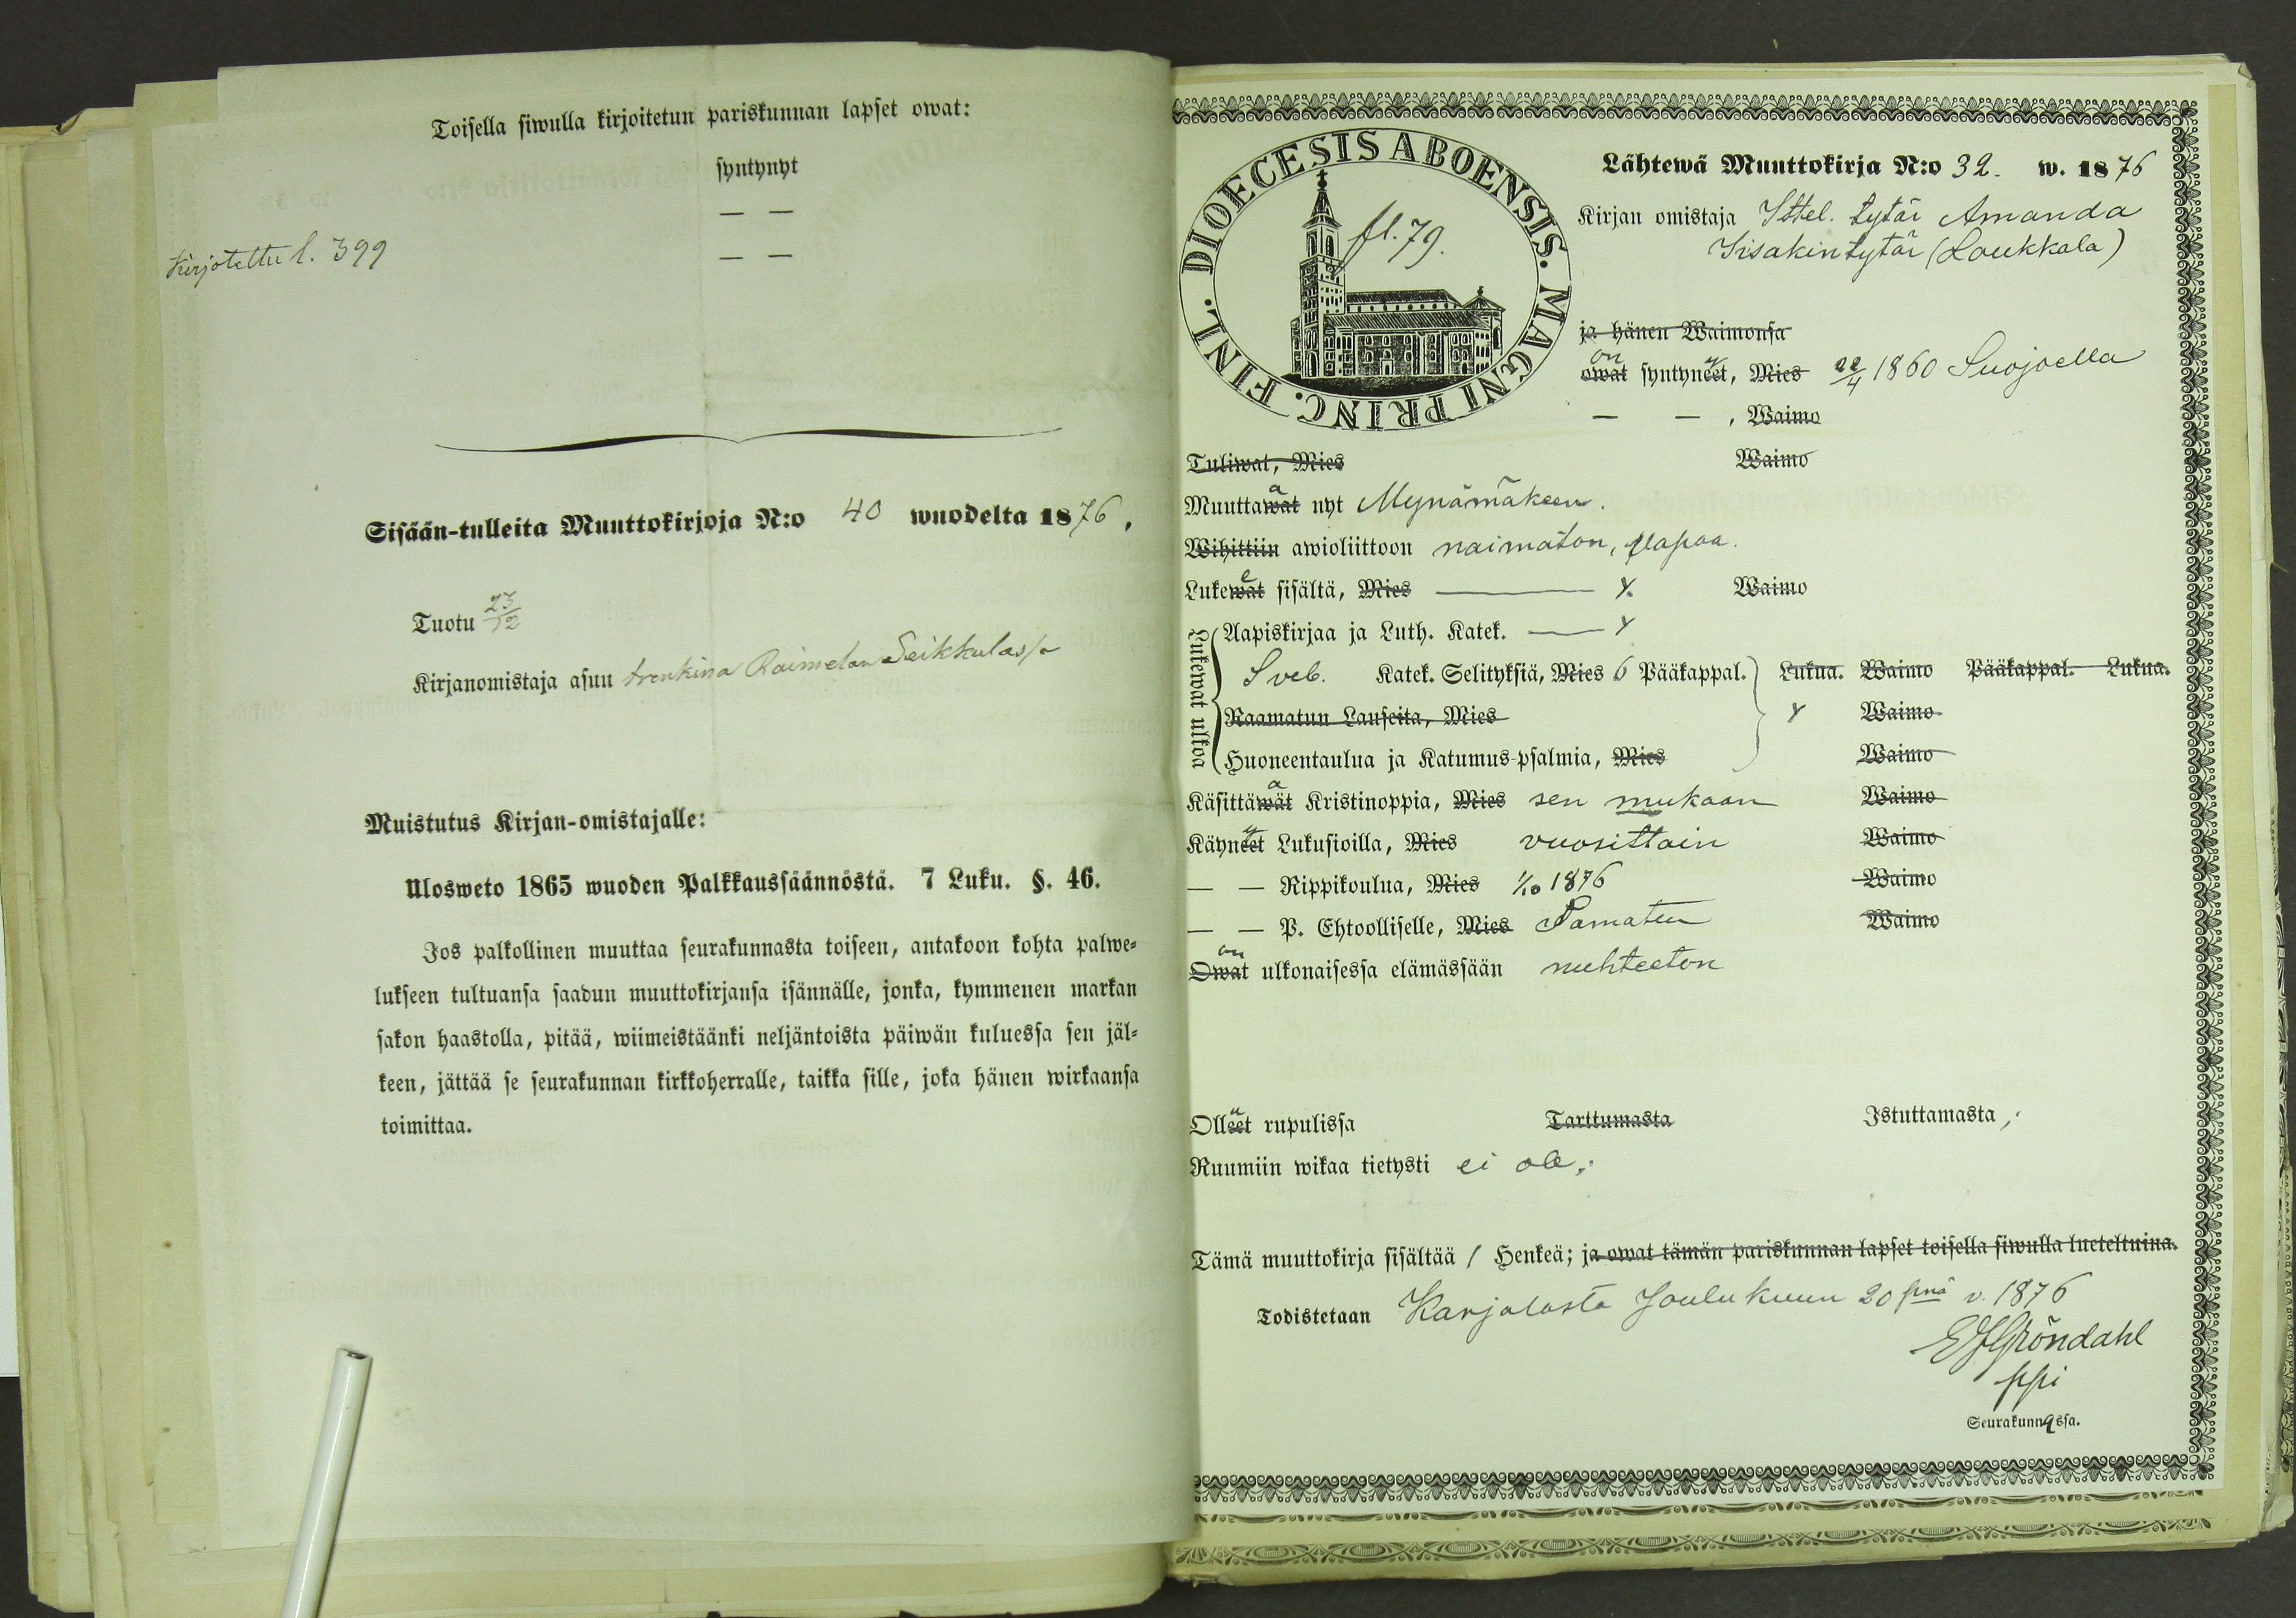 Toisella siwulla kirjoitetun pariskunnan lapset owat:
syntynyt
— —
Kirjotettu l. 399
— —
Sisään-tulleita Muuttokirjoja N:o 40 wuodelta 1876.
Tuotu 23/12
Kirjanomistaja asuu trenkinä Raimelan Seikkulassa
Muistutus Kirjan-omistajalle:
Ulosweto 1865 wuoden Palkkaussäännöstä. 7 Luku. §. 46.
Jos palkollinen muuttaa seurakunnasta toiseen, antakoon kohta palwe-
lukseen tultuansa saadun muuttokirjansa isännälle, jonka, kymmenen markan
sakon haastolla, pitää, wiimeistäänki neljäntoista päiwän kuluessa sen jäl-
keen, jättää se seurakunnan kirkkoherralle, taikka sille, joka hänen wirkaansa
toimittaa.
DIOECESIS ABOENSIS. MAGNI PRINC. FINL.
fl. 79.
Lähtewä Muuttokirja N:o 32. w. 1876
Kirjan omistaja Ittel. tytär Amanda
Iisakintytär (Loukkala)
ja hänen Waimonsa
on
owat syntyneet, Mies 22/4 1860 Suojoella
— — , Waimo
Tuliwat, Mies Waimo
Muuttawat nyt Mynämäkeen.
Wihittiin awioliittoon naimaton, vapaa.
Lukewat sisältä, Mies — y. Waimo
Lukewat ulkoa
Aapiskirjaa ja Luth. Katek. — y
Sveb. Katek. Selityksiä, Mies 6 Pääkappal. Lukua. Waimo Pääkappal. Lukua.
Raamatun Lauseita, Mies y Waimo
Huoneentaulua ja Katumus-psalmia, Mies Waimo
Käsittäwät Kristinoppia, Mies sen mukaan Waimo
Käyneet Lukusioilla, Mies vuosittain Waimo
— — Rippikoulua, Mies 1/10 1876 Waimo
— — P. Ehtoolliselle, Mies Samaten Waimo
on
Owat ulkonaisessa elämässään nuhteeton
Olleet rupulissa Tarttumasta Istuttamasta,
Ruumiin wikaa tietysti ei ole.
Tämä muuttokirja sisältää 1 Henkeä; ja owat tämän pariskunnan lapset toisella siwulla lueteltuina.
Todistetaan Karjalasta Joulukuun 20 pnä v. 1876
Gröndahl
ppi
Seurakunnassa.